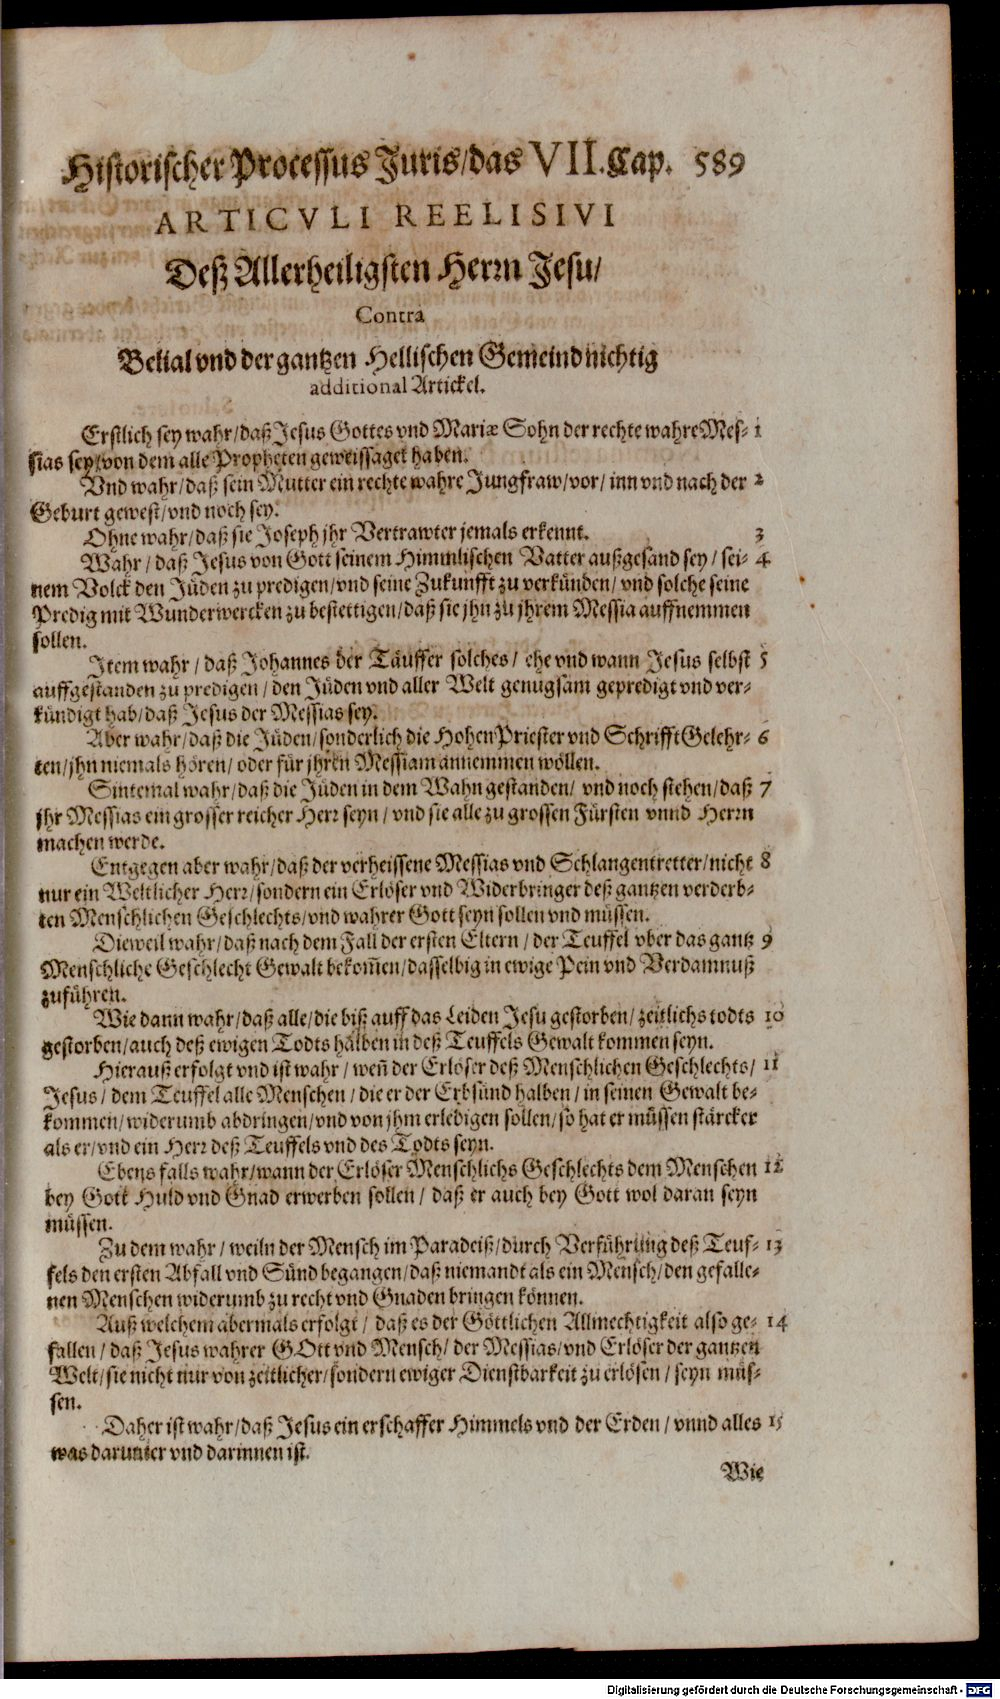 Historischer Processus Juris/das VII. Cap. 589
ARTICVLI REELISIVI
Deß Allerheiligsten Herrn Jesu/
Contra
Belial vnd der gantzen Hellischen Gemeind nichtig
additional Artickel.
Erstlich sey wahr/daß Jesus Gottes vnd Mariæ Sohn der rechte wahre Mes- 1
sias sey/von dem alle Propheten geweissaget haben.
Vnd wahr/daß sein Mutter ein rechte wahre Jungfraw/vor/inn vnd nach der 2
Geburt gewest/vnd noch sey.
Ohne wahr/daß sie Joseph jhr Vertrawter jemals erkennt. 3
Wahr/daß Jesus von Gott seinem Himmlischen Vatter außgesand sey/sei- 4
nem Volck den Jüden zu predigen/vnd seine Zukunfft zu verkünden/vnd solche seine
Predig mit Wunderwercken zu bestettigen/daß sie jhn zu jhrem Messia auffnemmen
sollen.
Item wahr/daß Johannes der Täuffer solches/ehe vnd wann Jesus selbst 5
auffgestanden zu predigen/den Jüden vnd aller Welt genugsam gepredigt vnd ver-
kündigt hab/daß Jesus der Messias sey.
Aber wahr/daß die Jüden/sonderlich die Hohen Priester vnd Schrifft Gelehr- 6
ten/jhn niemals hören/oder für jhren Messiam annemmen wöllen.
Sintemal wahr/daß die Jüden in dem Wahn gestanden/vnd noch stehen/daß 7
jhr Messias ein grosser reicher Herr seyn/vnd sie alle zu grossen Fürsten vnnd Herrn
machen werde.
Entgegen aber wahr/daß der verheissene Messias vnd Schlangentretter/nicht 8
nur ein Weltlicher Herr/sondern ein Erlöser vnd Widerbringer deß gantzen verderb-
ten Menschlichen Geschlechts/vnd wahrer Gott seyn sollen vnd müssen.
Dieweil wahr/daß nach dem Fall der ersten Eltern/der Teuffel vber das gantz 9
Menschliche Geschlecht Gewalt bekom̃en/dasselbig in ewige Pein vnd Verdamnuß
zuführen.
Wie dann wahr/daß alle/die biß auff das Leiden Jesu gestorben/zeitlichs todts 10
gestorben/auch deß ewigen Todts halben in deß Teuffels Gewalt kommen seyn.
Hierauß erfolgt vnd ist wahr/wen̄ der Erlöser deß Menschlichen Geschlechts/ 11
Jesus/dem Teuffel alle Menschen/die er der Erbsünd halben/in seinen Gewalt be-
kommen/widerumb abdringen/vnd von jhm erledigen sollen/so hat er müssen stärcker
als er/vnd ein Herr deß Teuffels vnd des Todts seyn.
Ebens falls wahr/wann der Erlöser Menschlichs Geschlechts dem Menschen 12
bey Gott Huld vnd Gnad erwerben sollen/daß er auch bey Gott wol daran seyn
müssen.
Zu dem wahr/weiln der Mensch im Paradeiß/durch Verführung deß Teuf- 13
fels den ersten Abfall vnd Sünd begangen/daß niemandt als ein Mensch/den gefalle-
nen Menschen widerumb zu recht vnd Gnaden bringen können.
Auß welchem abermals erfolgt/daß es der Göttlichen Allmechtigkeit also ge- 14
fallen/daß Jesus wahrer GOtt vnd Mensch/der Messias/vnd Erlöser der gantzen
Welt/sie nicht nur von zeitlicher/sondern ewiger Dienstbarkeit zu erlösen/seyn müs-
sen.
Daher ist wahr/daß Jesus ein erschaffer Himmels vnd der Erden/vnnd alles 15
was darunter vnd darinnen ist.
Wie
Digitalisierung gefördert durch die Deutsche Forschungsgemeinschaft - DFG